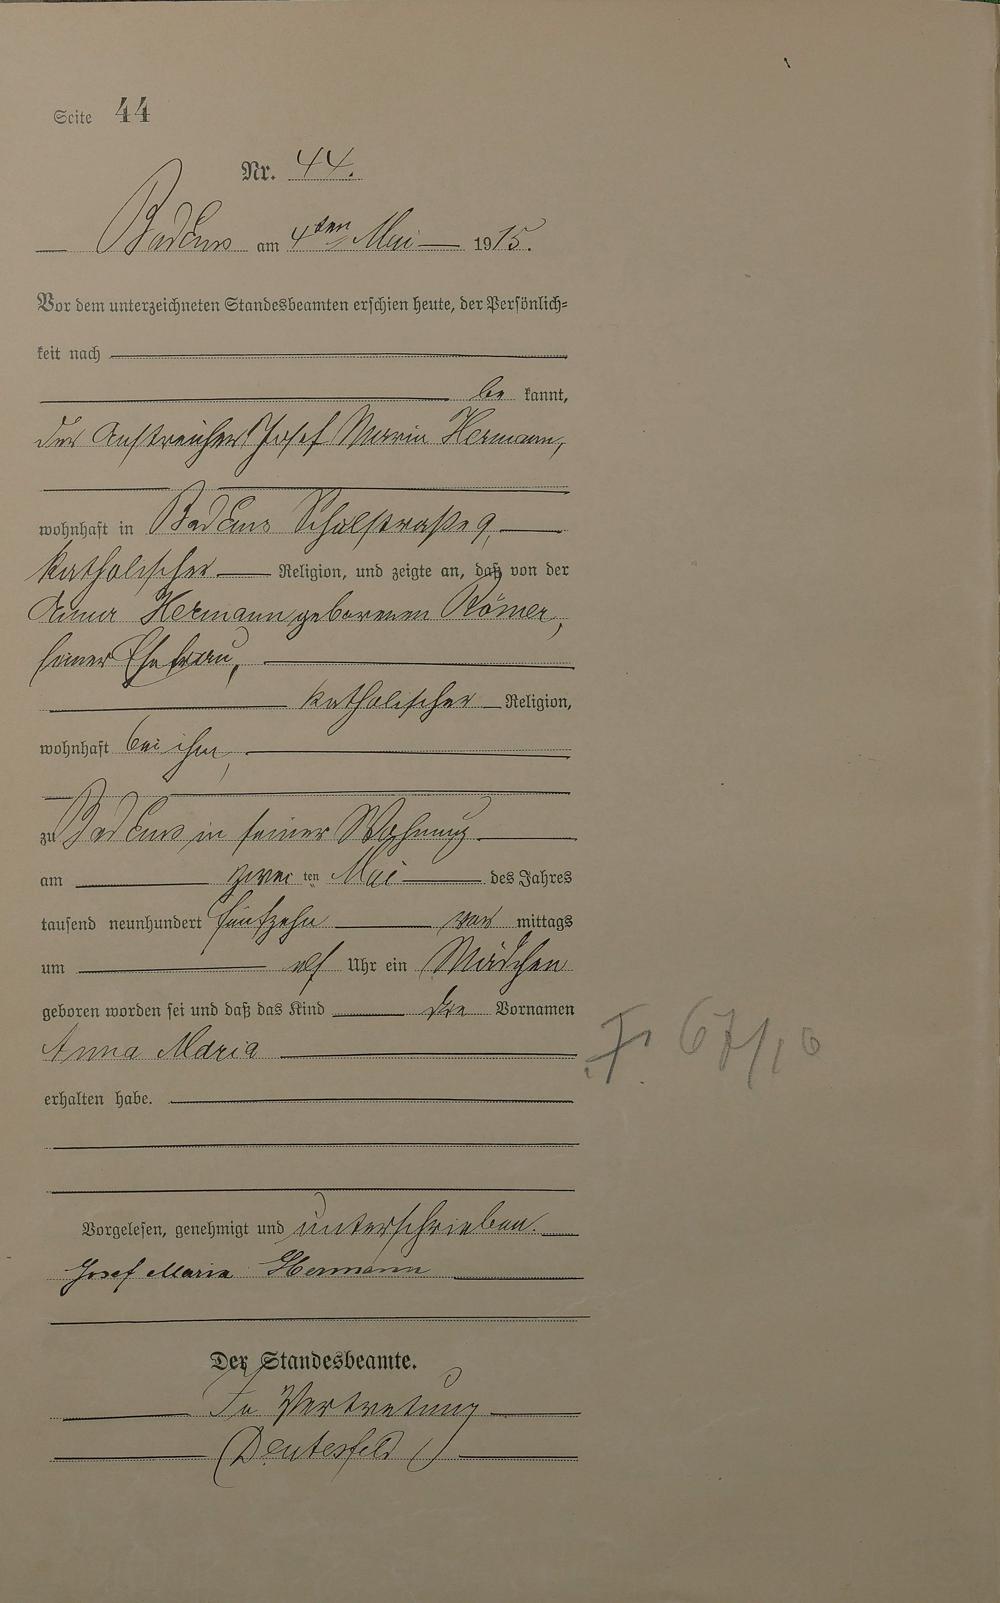 Seite 44
Nr. 44.
Bad Ems am 4ten Mai 1915.
Vor dem unterzeichneten Standesbeamten erschien heute, der Persönlich=
keit nach
be kannt,
der Anstreicher Josef Maria Hermann,
wohnhaft in Bad Ems Schulstraße 9,
katholischer Religion, und zeigte an, daß von der
Anna Hermann geborenen Römer,
seiner Ehefrau,
katholischer Religion,
wohnhaft bei ihm,
zu Bad Ems in seiner Wohnung
am zwei ten Mai des Jahres
tausend neunhundert fünfzehn vor mittags
um elf Uhr ein Mädchen
geboren worden sei und daß das Kind die Vornamen
Anna Maria
F. 67/10
erhalten habe.
Vorgelesen, genehmigt und unterschrieben.
Josef Maria Hermann
Der Standesbeamte.
In Vertretung
(Deutesfeld)